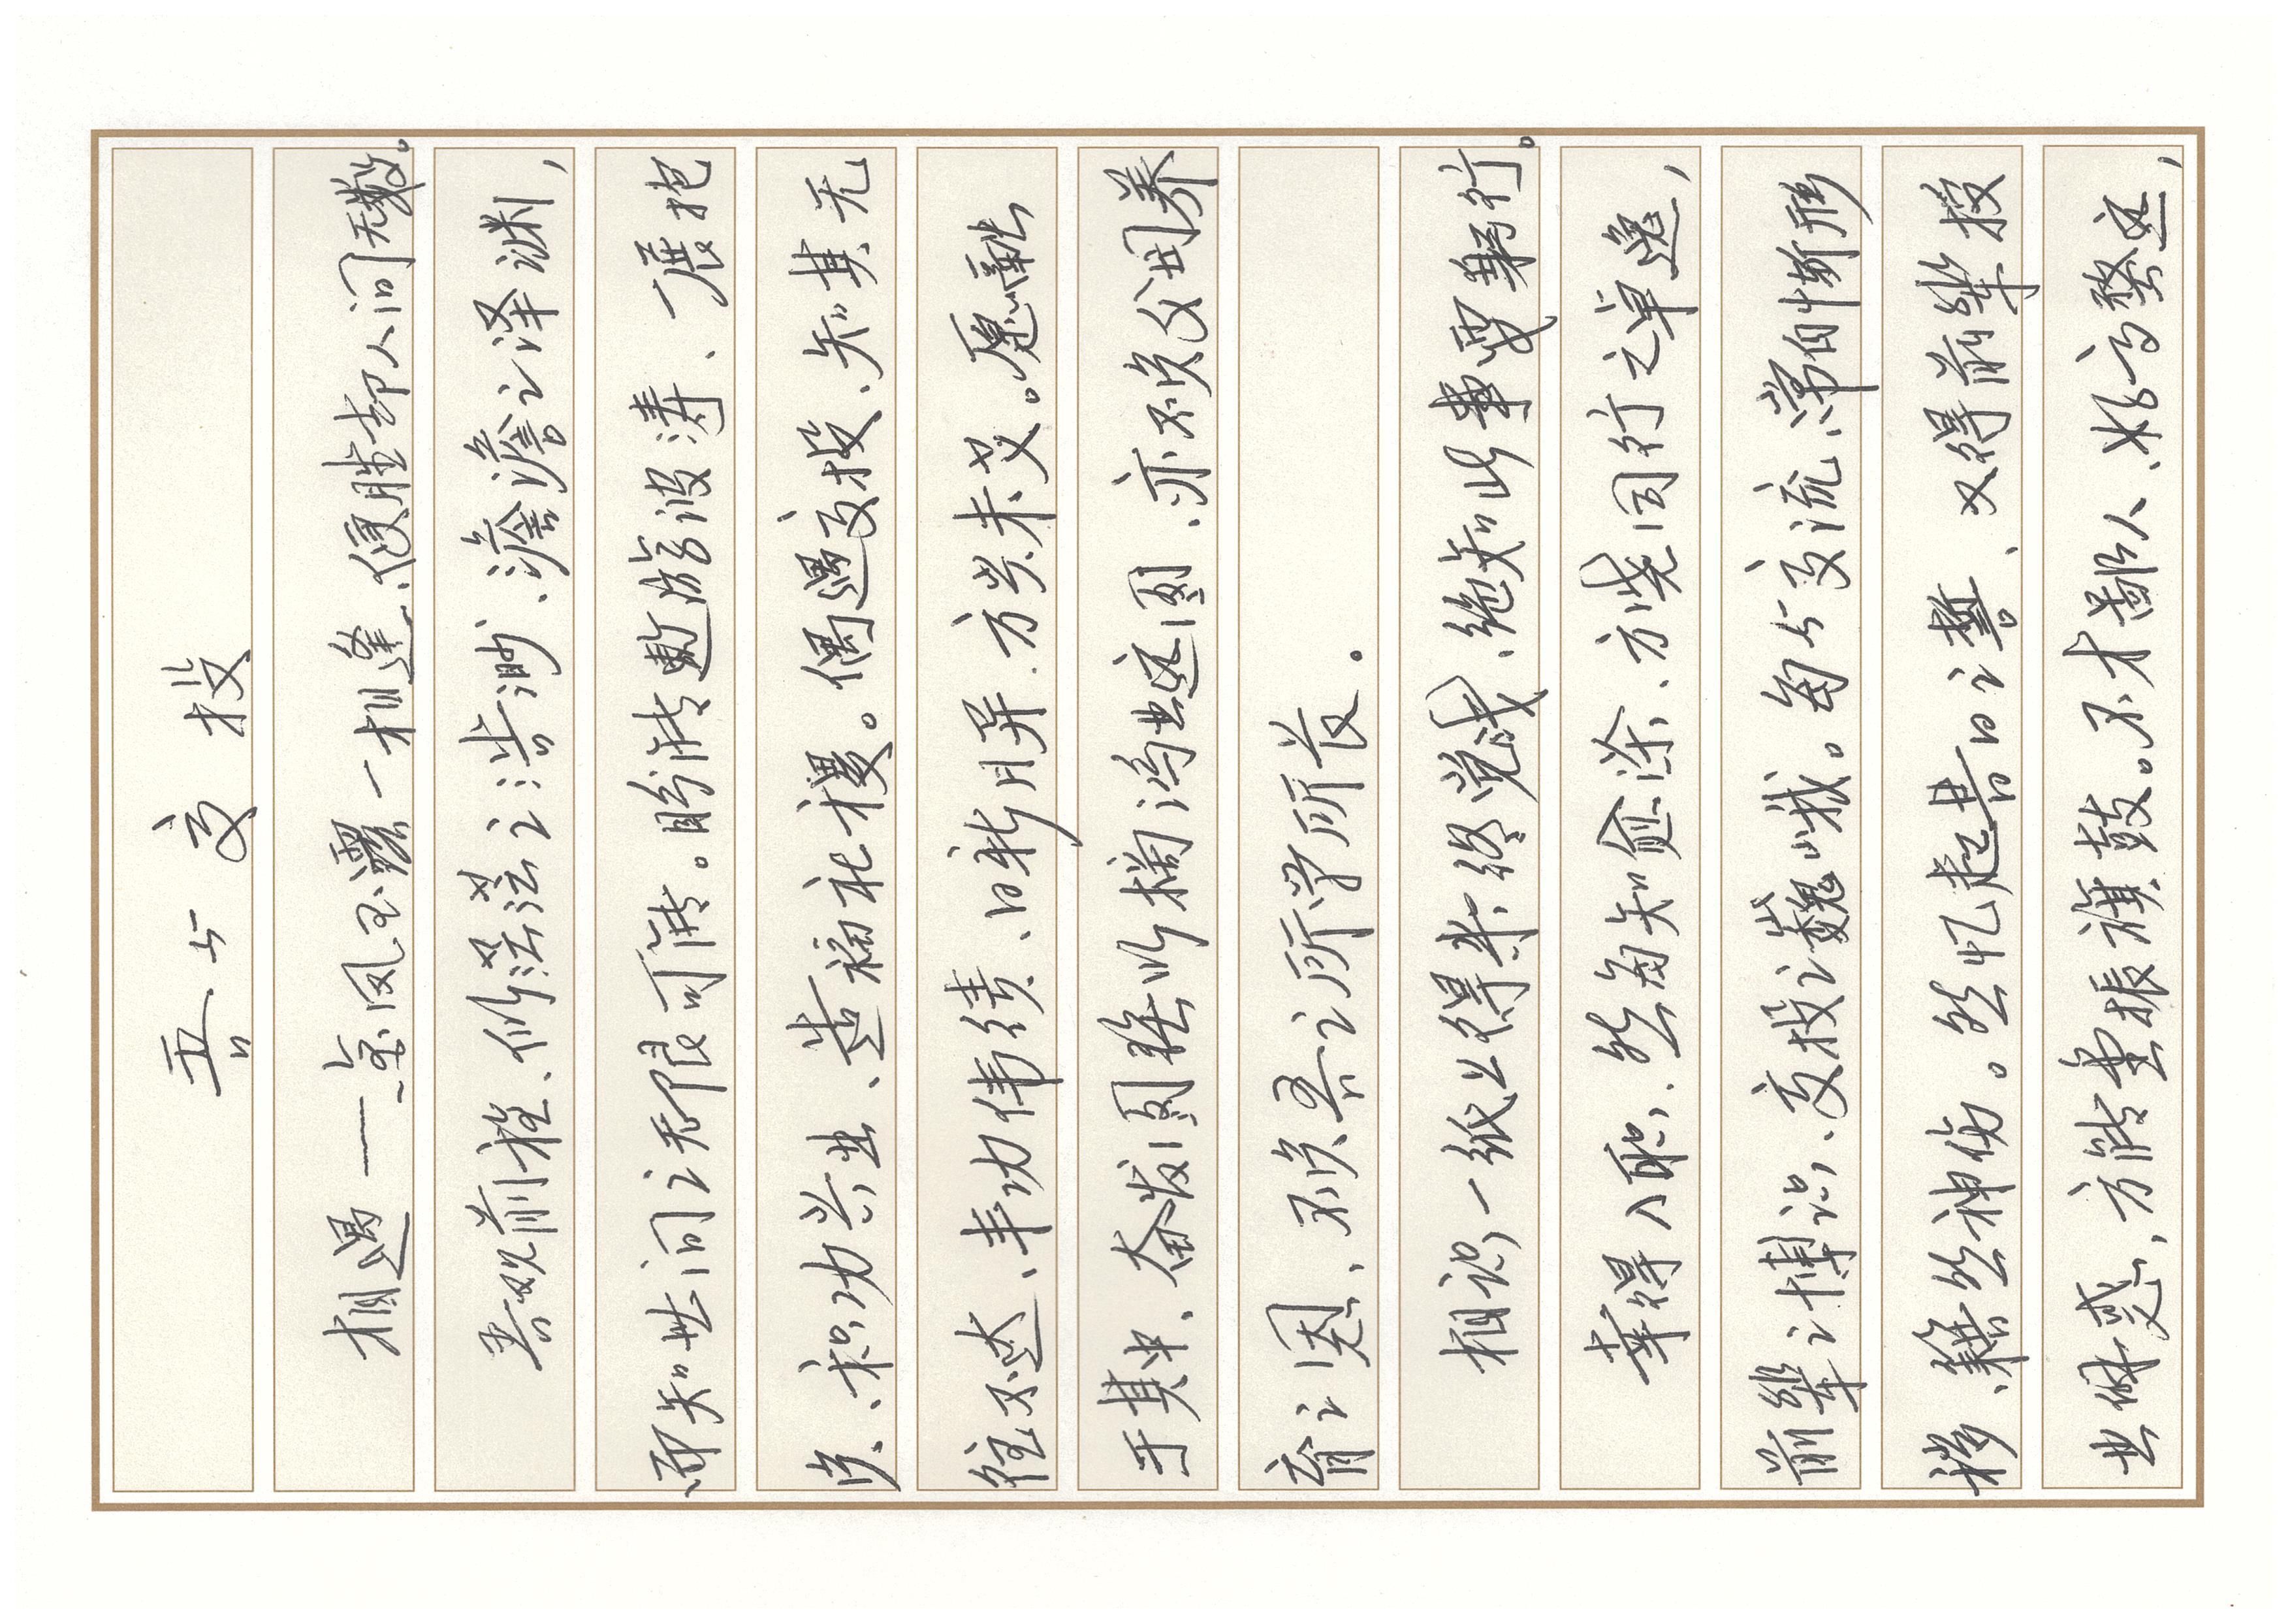 吾与交投
相遇——金风玉露一相逢、便胜却人间无数。
吾观前程、似茫茫之浩渺、澹澹之泽渊，
而知世间之无限可能。盼能遨游波涛、一展抱
负、积功兴业、造福社稷。偶遇交投、知其无
往不达、丰功伟绩、日新月异、方兴未艾。愿融
于其中、奋发图强以摘鸿业远图、亦不负父母养
育之恩、不负吾之所学所长。
相识一纸上得来终觉浅、绝知此事要躬行。
幸得入职、然每知愈深、方觉同行之卓逸，
前辈之博识、交投之巍峨。每与交流、常自惭形
秽、籍然神伤。然忆起昔日之誓、又得前辈授
业解惑，方能重振旗鼓。不才鄙人、好高骛远，